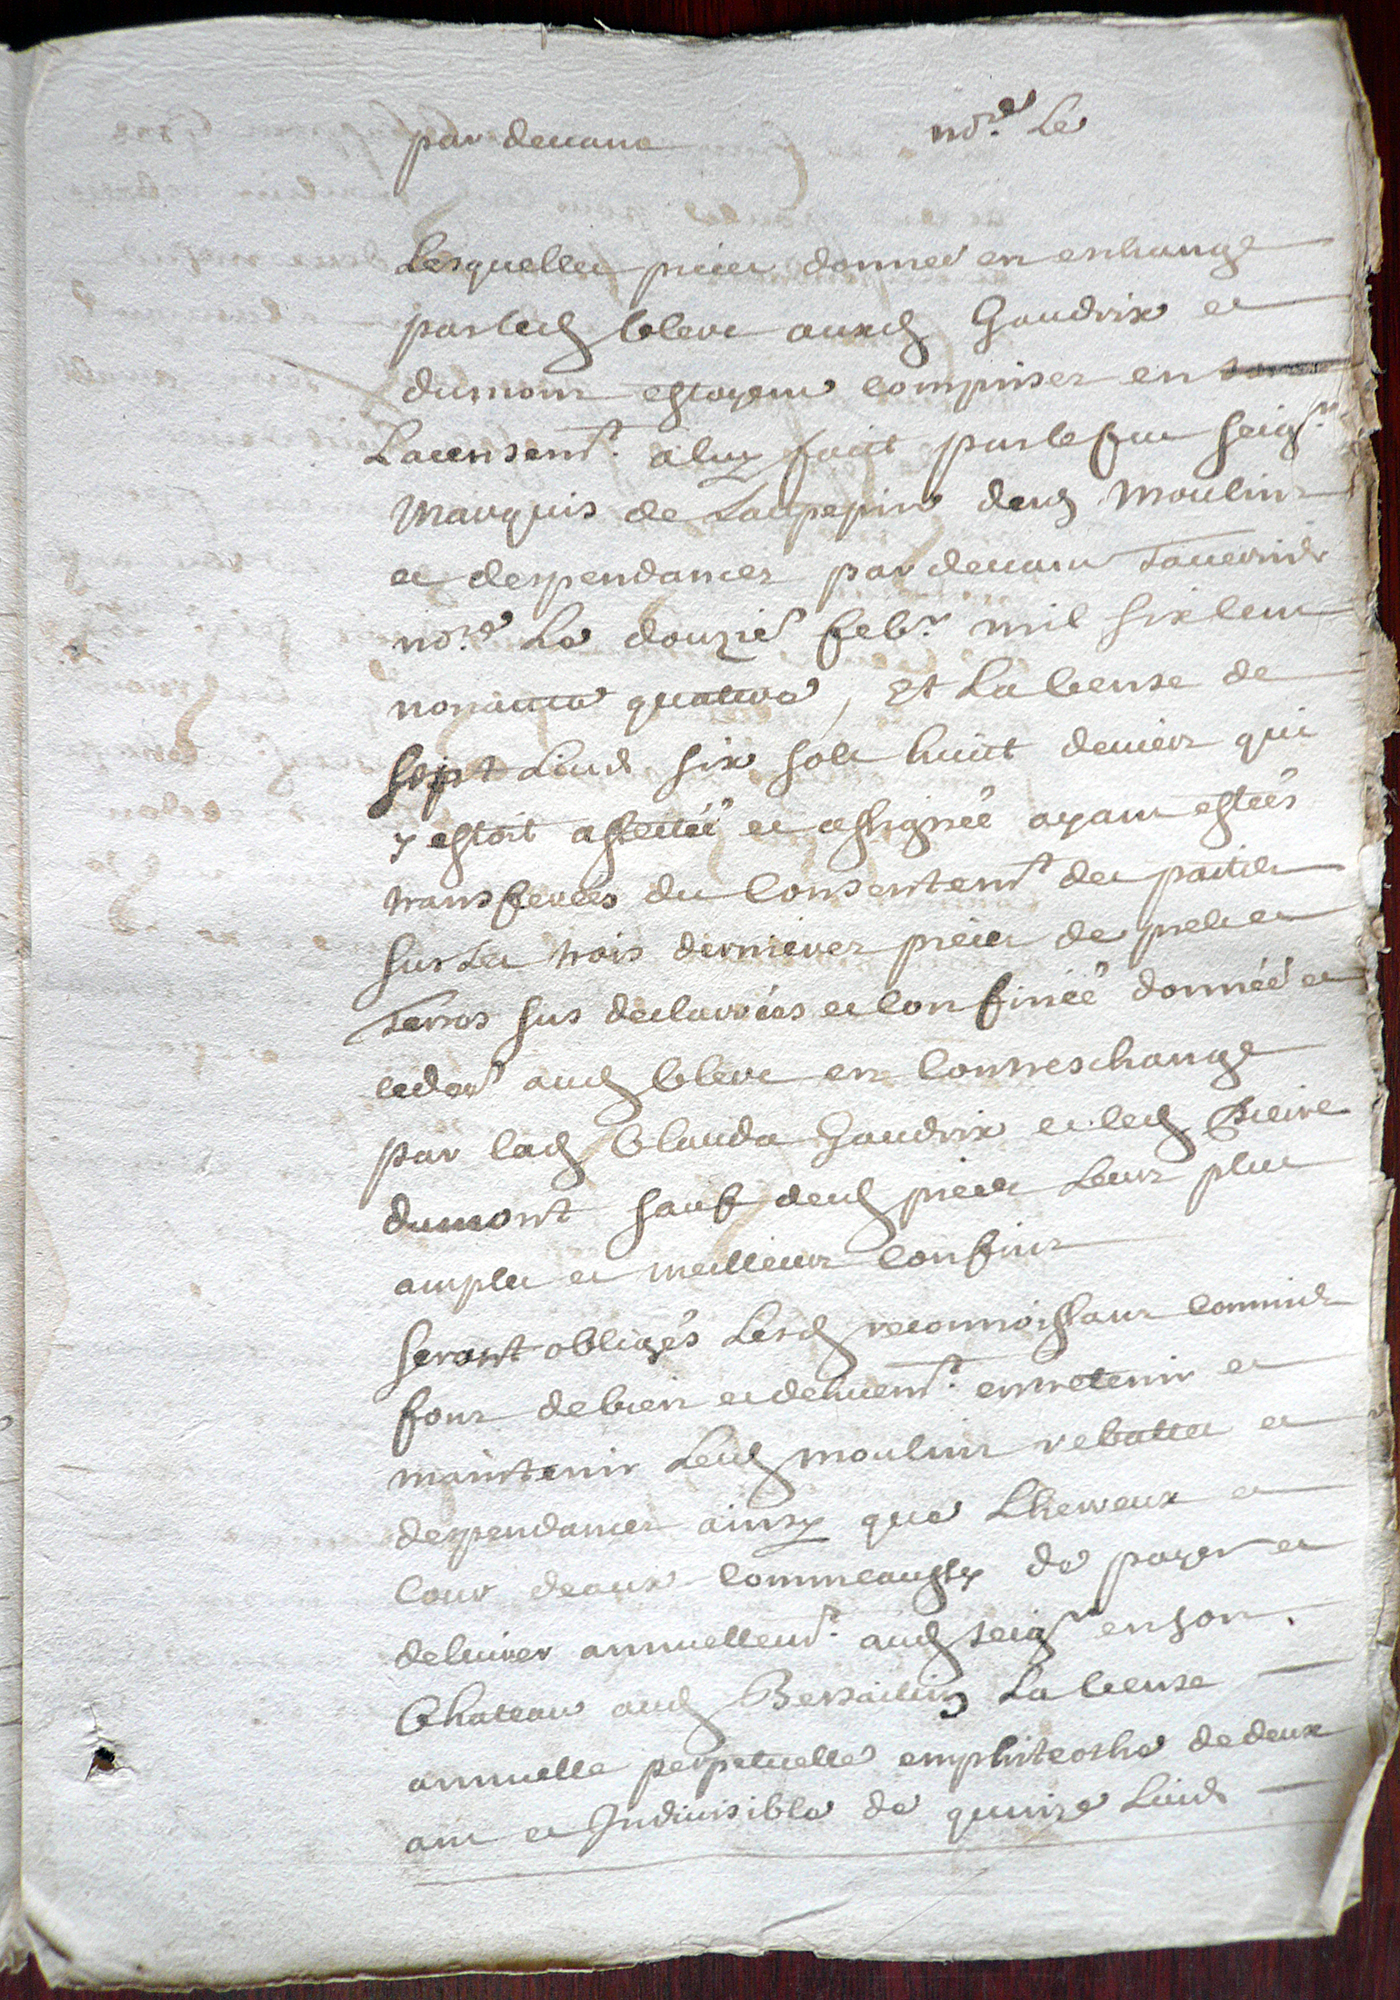 par devant nore Le
Lesquelles pieces donnee en eschange
par led Clerc auxd Gaudrix et
dumont estoyent comprises en
Lacensemt a luy fait par le fut seigr
Marquis de Laupepin desd Moulins
et despendances par devant Tavernier
nore Le douzie febr mil six cent
nonante quattre, Et La Cense de
sept Livres six sols huict deniers qui
y estoit affectée et assignée ayant estées
transferées du Consentemt des parties
sur Les trois dernieres pieces de prel et
Terres sus declarées et Confinée donnée et
cedée aud Clerc en Contreschange
par lad Clauda Gaudrix et led Pierre
dumont sauf desd pieces Leurs plus
amples et meilleurs Confins
seront obligés Lesd reconnoissans Comme
font de bien et dehuemt entretenir et
maintenir Lesd moulins rebatte et
despendances ainsy que L
Cour deaux Comme aussy de payer et
delivrer annuellemt aud seigr en son
Chateau aud Bersaillin La Cense
annuelle perpetuelle emphiteothe de deux
ans et Indivisible de quinze Livres